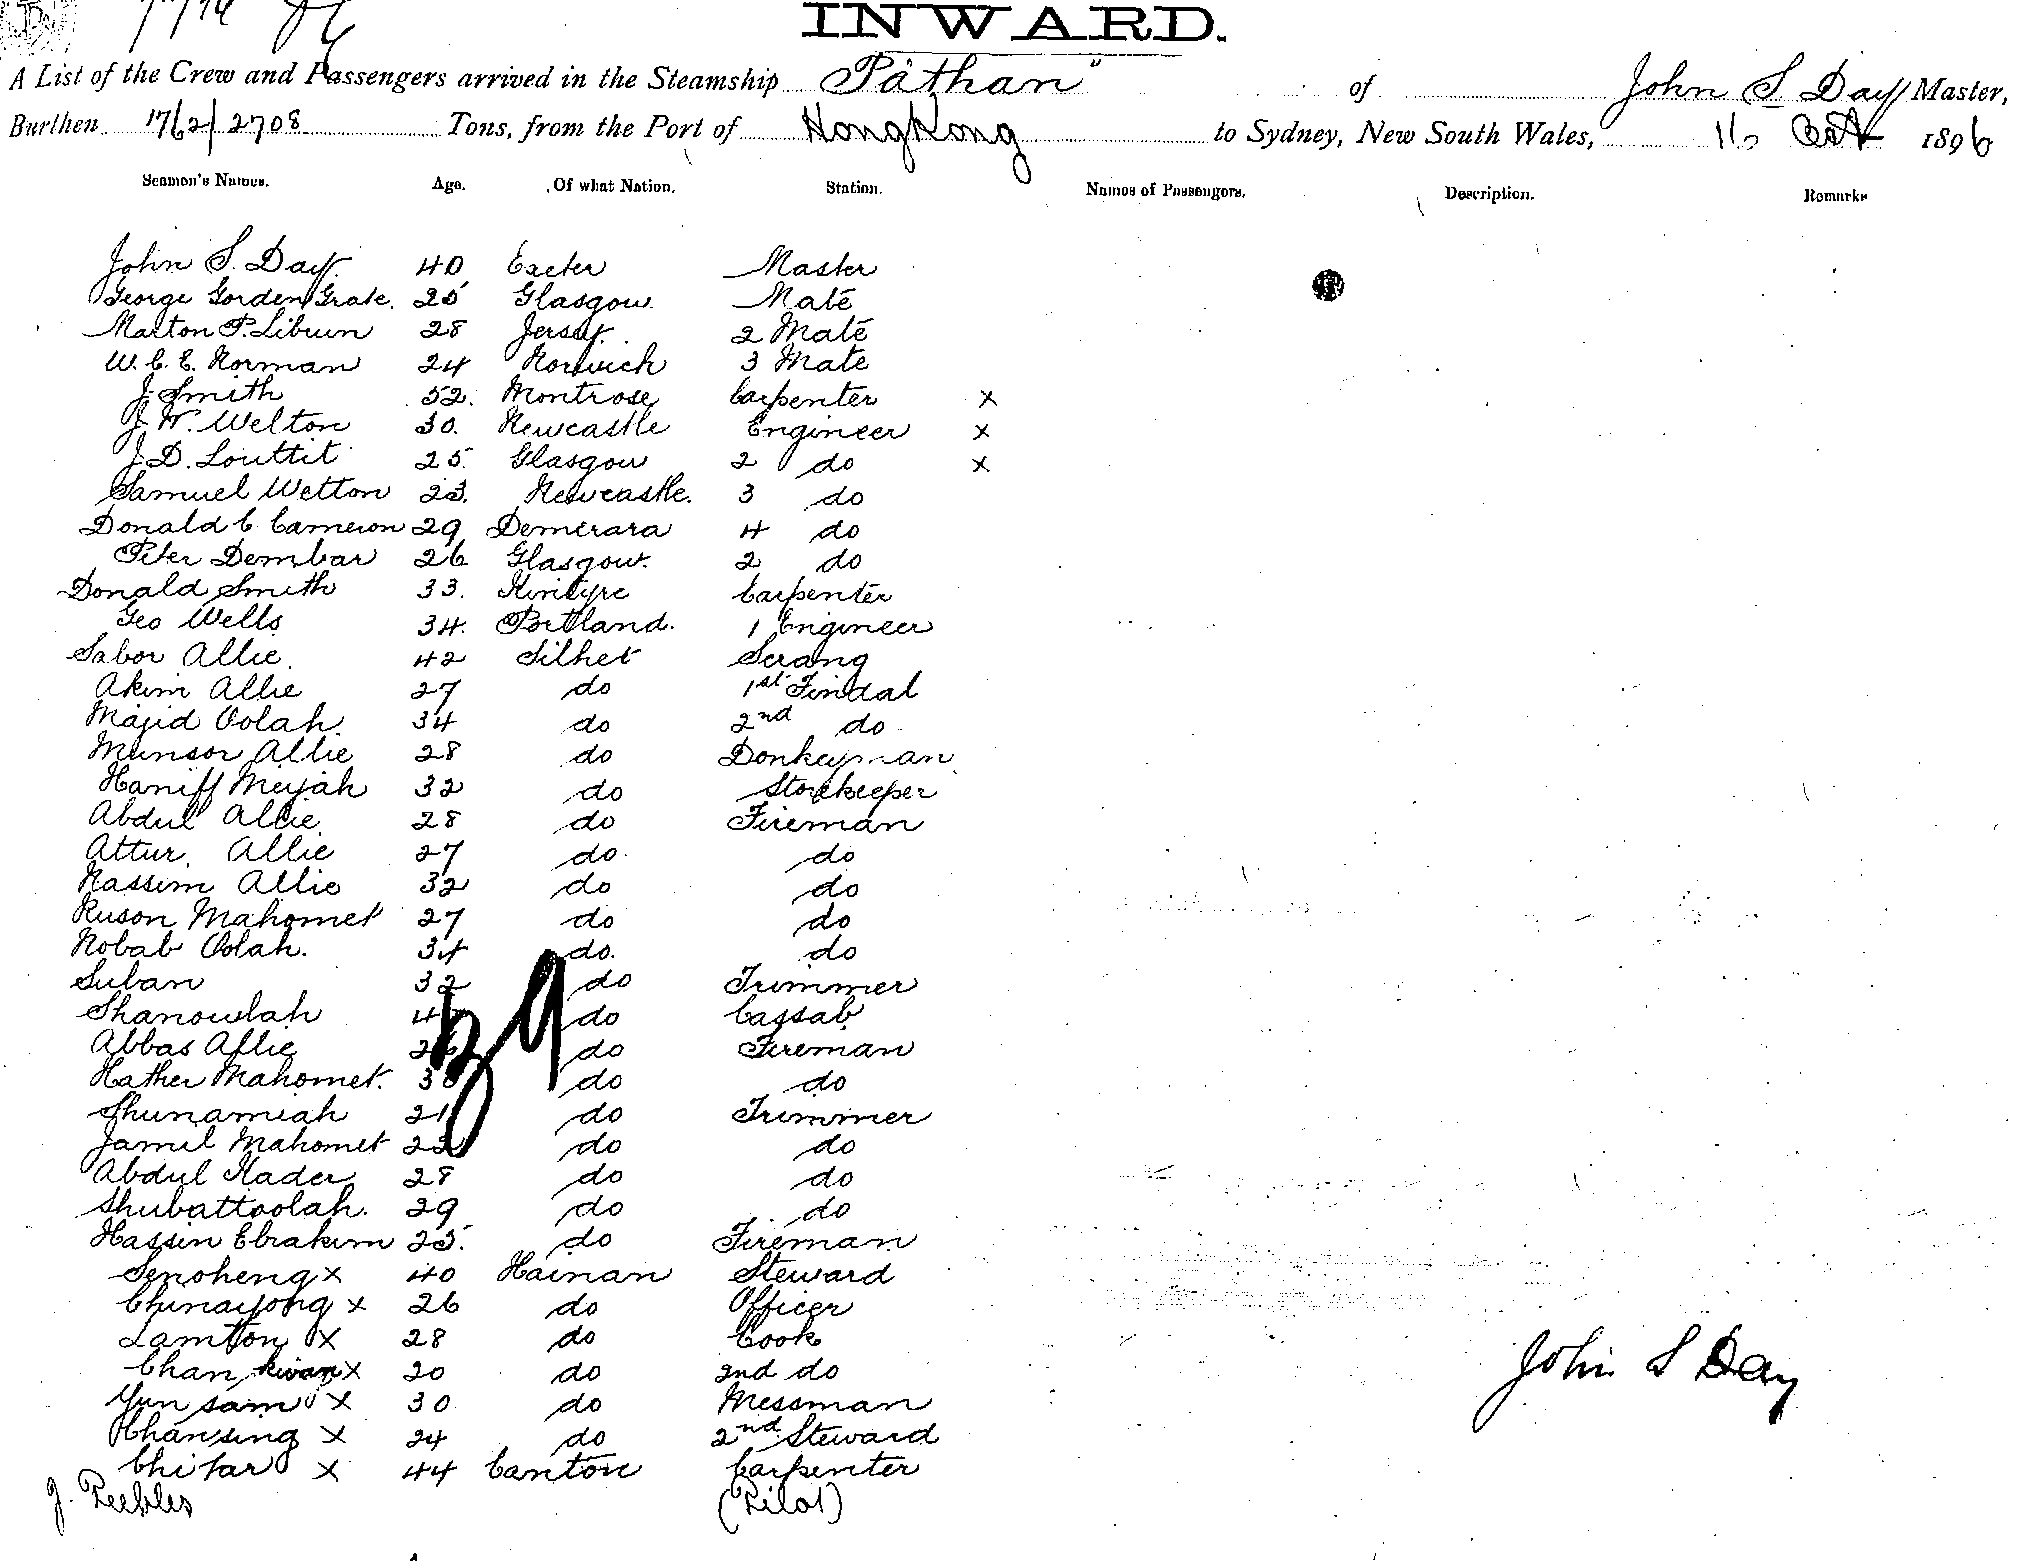 INWARD.
A List of the Crew and Passengers arrived in the Steamship "Pathan" of John S. Day Master,
Burthen 1762/2708 Tons, from the Port of HongKong to Sydney, New South Wales, 16 Oct 1896
Seamen's Names. Age. Of what Nation. Station. Names of Passengers. Description. Remarks
John S. Day. 40 Exeter Master
George Gorden Grate. 25 Glasgow. Mate
Marton P. Librun 28 Jersey. 2 Mate
W. C. E. Norman 24 Norwich 3 Mate
J. Smith 52. Montrose Carpenter x
J. W. Welton 30. Newcastle Engineer x
J. D. Louttit 25. Glasgow 2 do x
Samuel Welton 23. Newcastle. 3 do
Donald C. Cameron 29 Demerara 4 do
Peter Dembar 26 Glasgow. 2 do
Donald Smith 33. Kintyre Carpenter
Geo Wells 34. Portland. 1 Engineer
Sabor Allie. 42 Silhet Serang
Akim Allie 27 do 1st Tindal
Majid Oolah. 34 do 2nd do
Munsor Allie 28 do Donkeyman
Haniff Meyah 32 do Storekeeper
Abdul Allie 28 do Fireman
Attur. Allie 27 do do
Nassim Allie 32 do do
Ruson Mahomet 27 do do
Nobab Oolah. 34 do. do
Suban 32 do Trimmer
Shanowlah do Cassab
Abbas Allie 26 do Fireman
Hather Mahomet. 30 do do
Shunamiah 21 do Trimmer
Jamil Mahomet 22 do do
Abdul Kader 28 do do
Shubattoolah. 29 do do
Hassin Ebrahim 25. do Fireman
39
Senoheng x 40 Hainan Steward
Chunayong x 26 do Officer
Lamtton x 28 do Cook
Chan kwang x 20 do 2nd do
Yun sam x 30 do Messman
Chansing x 24 do 2nd Steward
Chitar x 44 Canton Carpenter
J. Peebles (Pilot)
John S Day